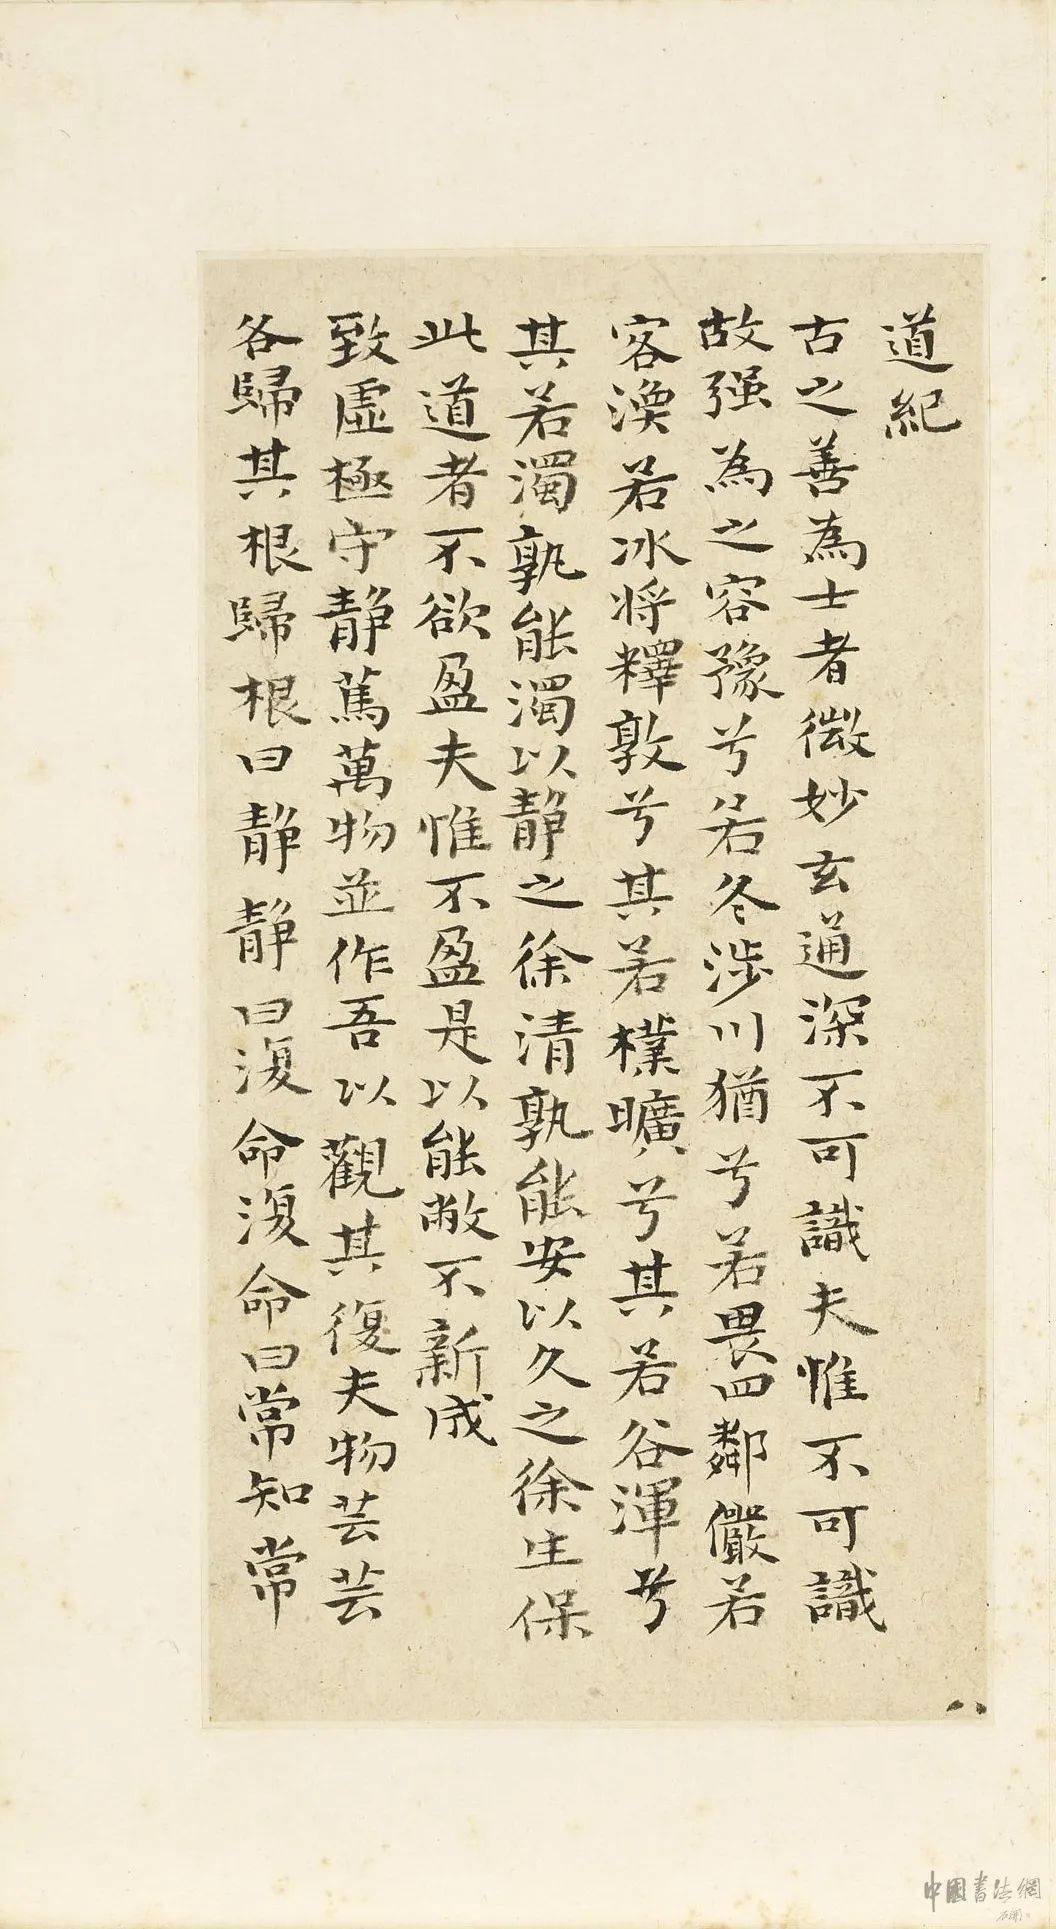 道紀
古之善為士者微妙玄通深不可識夫惟不可識
故强為之容豫兮若冬涉川猶兮若畏四鄰儼若
客渙若冰將釋敦兮其若樸曠兮其若谷渾兮
其若濁孰能濁以静之徐清孰能安以久之徐生保
此道者不欲盈夫惟不盈是以能敝不新成
致虛極守静篤萬物並作吾以觀其復夫物芸芸
各歸其根歸根曰静静曰復命復命曰常知常
八
中國書法網